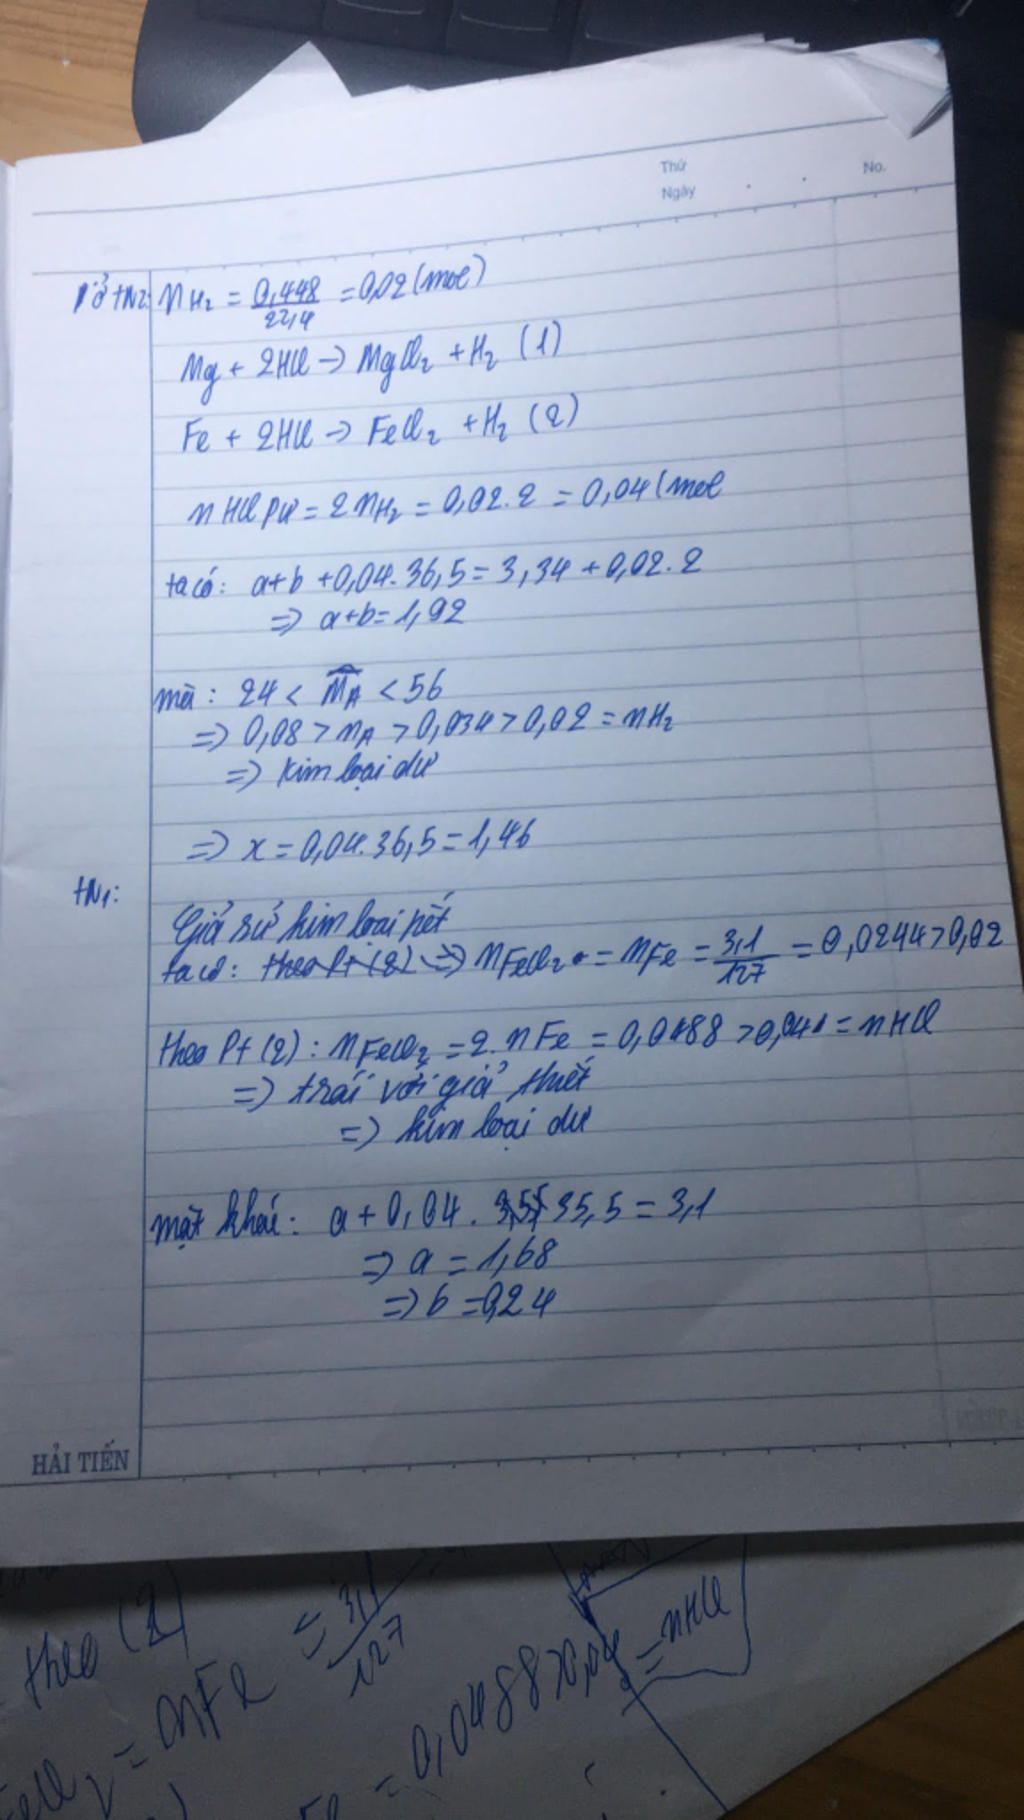 Thứ
No.
Ngày
Ở tN2: nH2 = 0,448/22,4 = 0,02 (mol)
Mg + 2HCl → MgCl2 + H2 (1)
Fe + 2HCl → FeCl2 + H2 (2)
nHCl pư = 2nH2 = 0,02.2 = 0,04 (mol
ta có: a+b +0,04.36,5 = 3,34 + 0,02.2
=> a+b = 1,92
mà: 24 < MA < 56
=> 0,08 > nA > 0,034 > 0,02 = nH2
=> kim loại dư
=> x = 0,04.36,5 = 1,46
tN1:
Giả sử kim loại hết
ta có: theo Pt (2) => nFeCl2 = nFe = 3,1/127 = 0,0244 > 0,02
theo Pt (2): nFeCl2 = 2.nFe = 0,0488 > 0,04 = nHCl
=> trái với giả thiết
=> kim loại dư
mặt khác: a + 0,04. 35,5 = 3,1
=> a = 1,68
=> b = 0,24
HẢI TIẾN
theo (2)
= 3,1/127
FeCl2 = nFe
= 0,0488 > 0,04 = nHCl